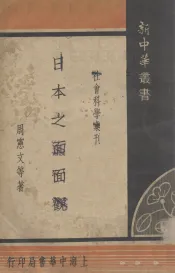 新中華叢書
社會科學彙刊
日本之面面觀
周憲文等著
上海中華書局印行